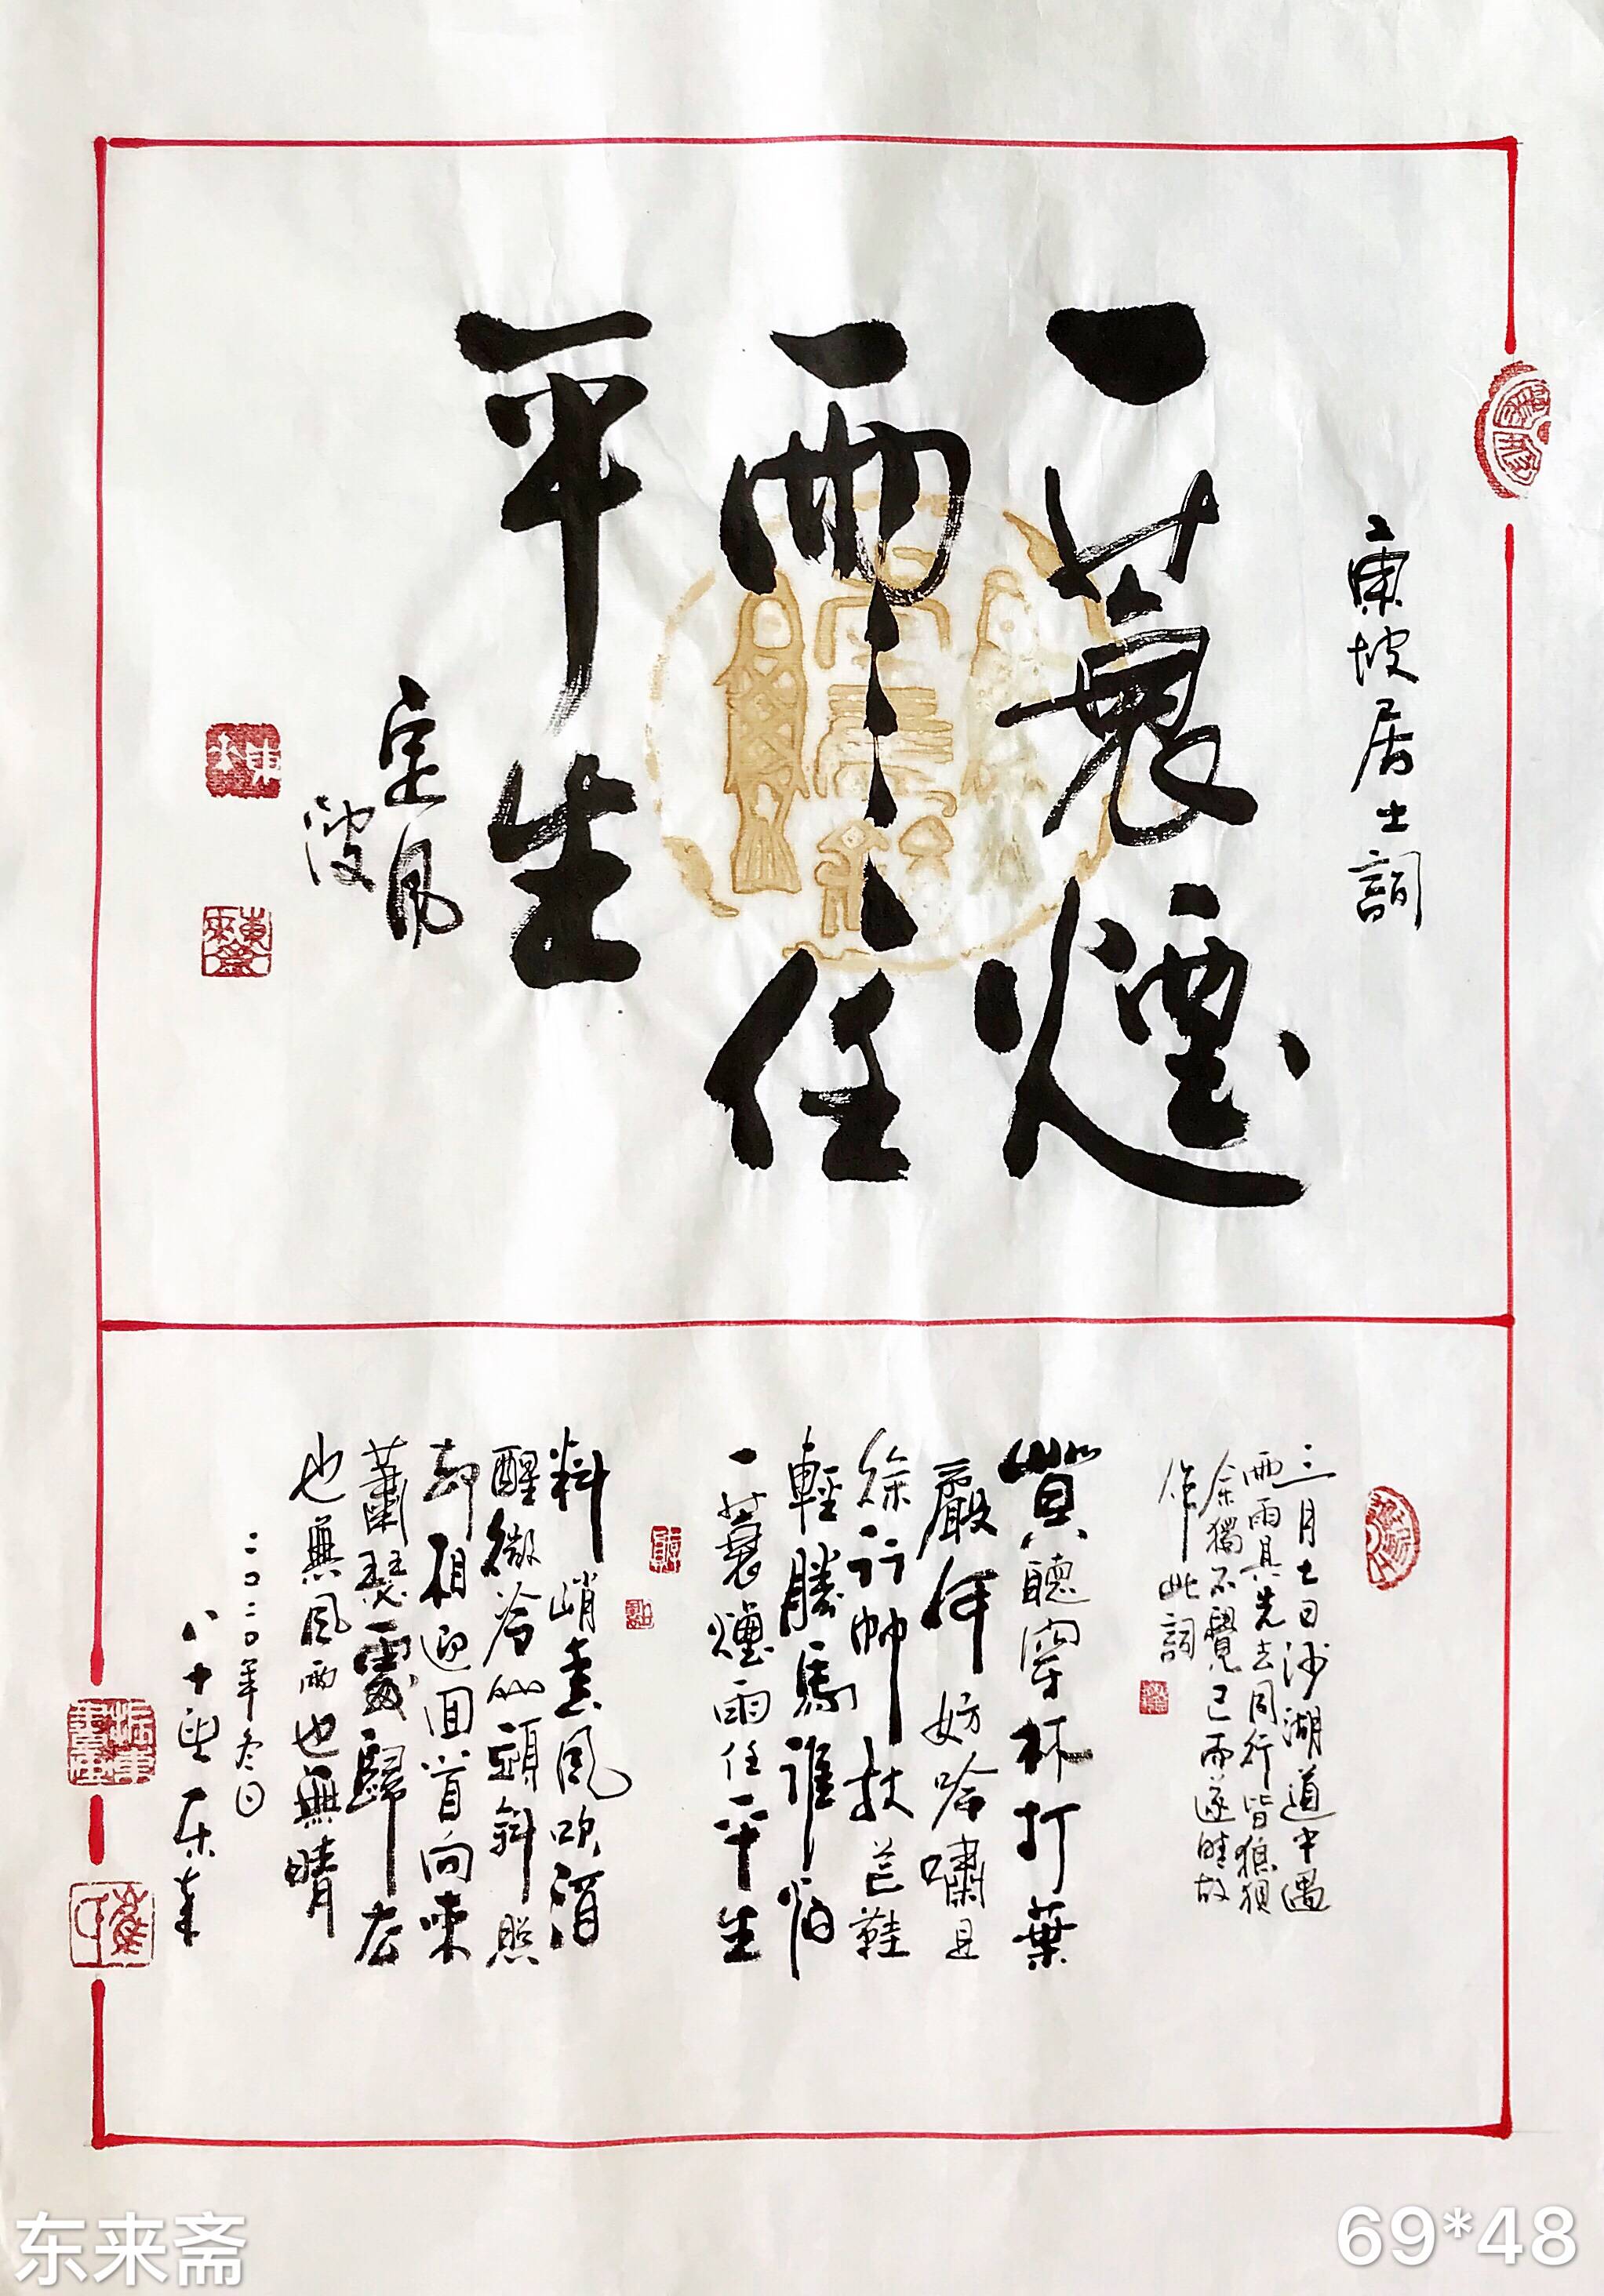 東坡居士詞
一蓑煙
雨任
平生
定風
波
三月七日沙湖道中遇
雨雨具先去同行皆狼狽
余獨不覺已而遂晴故
作此詞
莫聽穿林打葉
聲何妨吟嘯且
徐行竹杖芒鞋
輕勝馬誰怕
一蓑煙雨任平生
料峭春風吹酒
醒微冷山頭斜照
却相迎回首向來
蕭瑟處歸去
也無風雨也無晴
二〇二〇年冬日
八十叟东来
东来斋
69*48